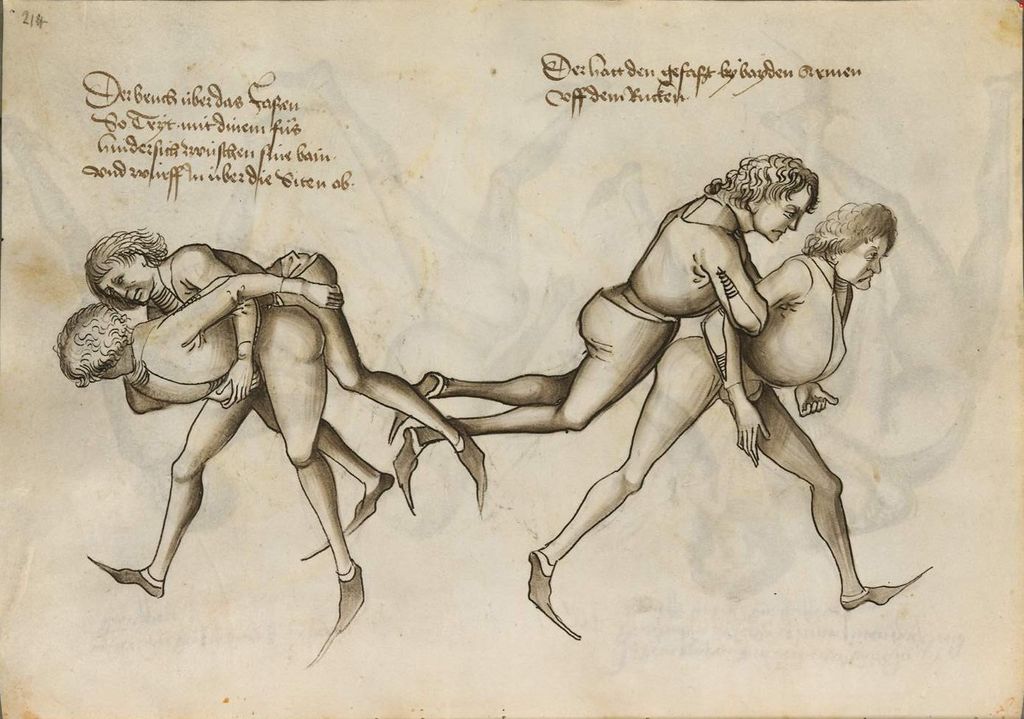 214
Der bruch über das Fassen
So Tryt mit dinem fůs
hindersich zwüschen sine bain
vnd würff in über die Siten ab
Der hatt den gefasst by bayden Armen
vff dem Rucken